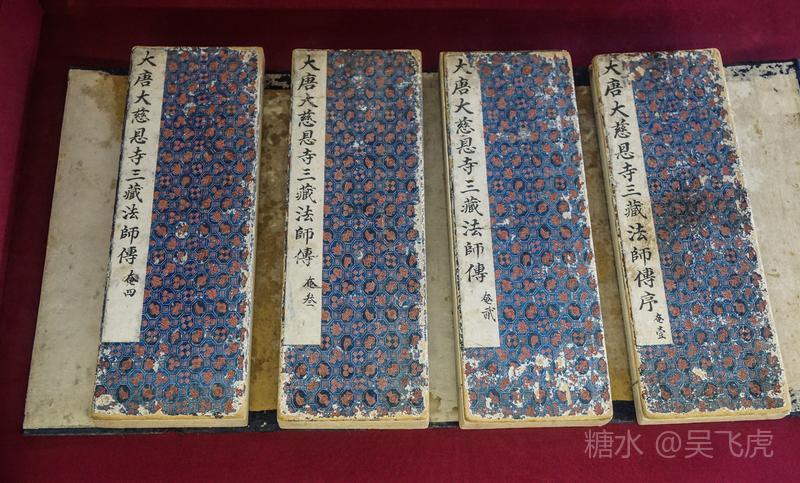 大唐大慈恩寺三藏法師傳序 卷壹
大唐大慈恩寺三藏法師傳 卷貳
大唐大慈恩寺三藏法師傳 卷叁
大唐大慈恩寺三藏法師傳 卷四
糖水 @吴飞虎